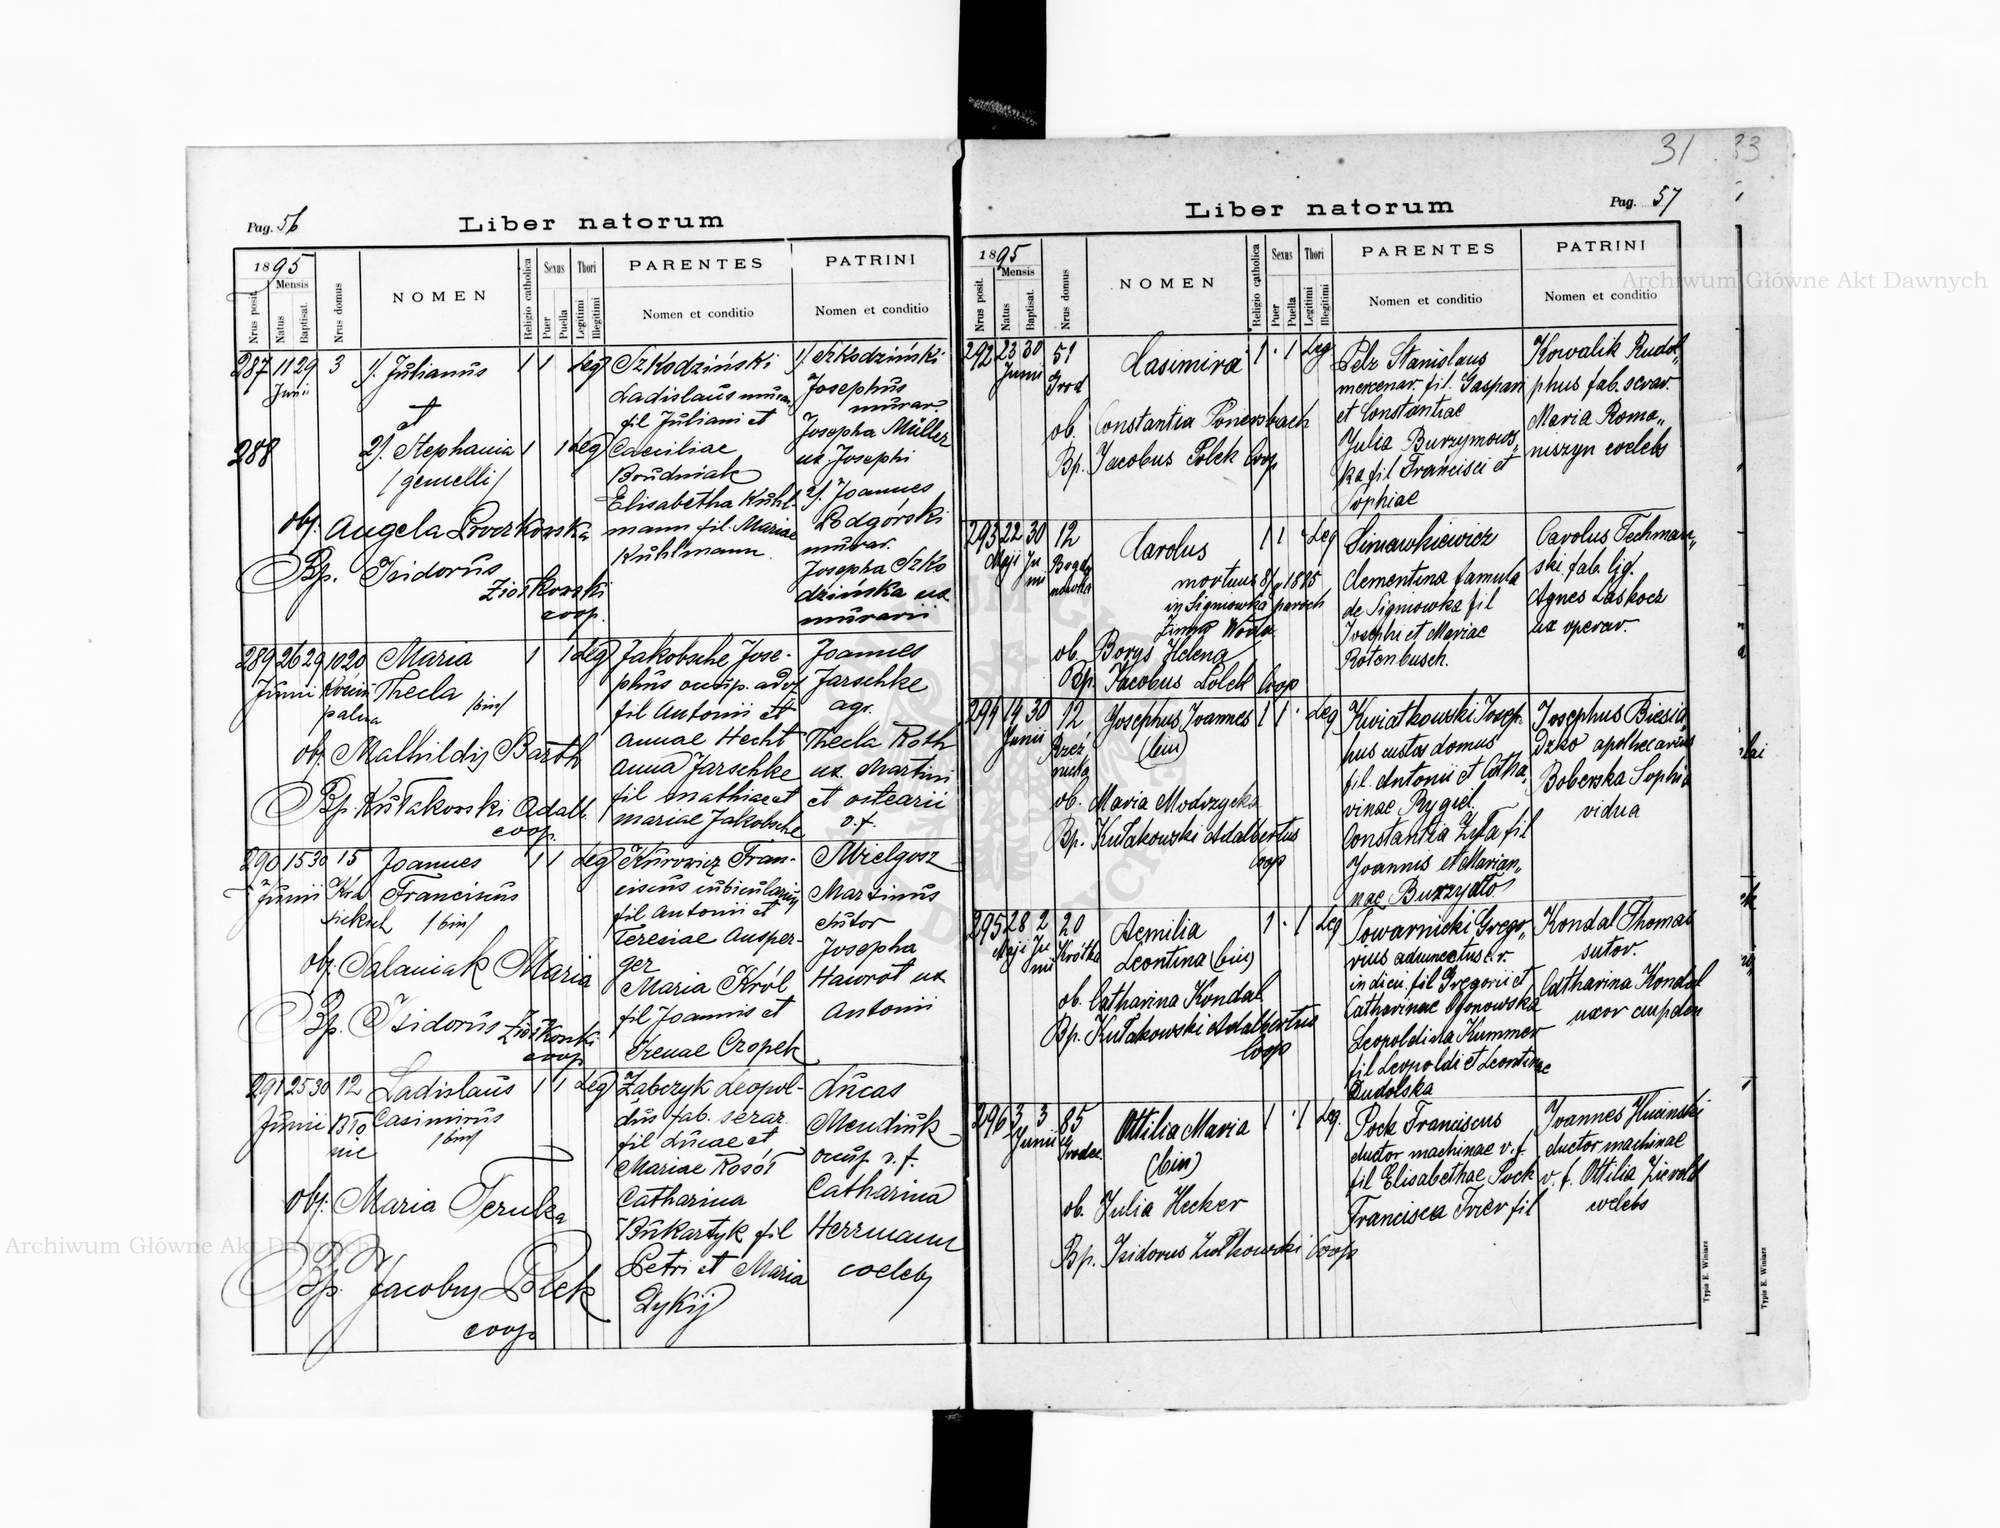 31 33
Pag. 56
Liber natorum
1895
Mensis
Nrus posit.
Natus
Baptisat.
Nrus domus
NOMEN
Religio catholica
Sexus
Puer
Puella
Thori
Legitimi
Illegitimi
PARENTES
Nomen et conditio
PATRINI
Nomen et conditio
287 11 29 3 1/. Julianus 1 1 Leg
Junii
et
288 2/. Stephania 1 1 Leg
/gemelli/
obst. Angela
Bp. Isidorus
Ziółkowski
coop.
Szkodziński
Ladislaus murar.
fil Juliani et
Caeciliae
Boudniak
Elisabetha Kuhl-
mann fil. Mariae
Kuhlmann
1/. Szkodziński
Josephus
murar.
Josepha Müller
ux. Josephi
2/. Joannes
Podgórski
murar.
Josepha Szko
dzińska ux
murarii
289 26 29 1020 Maria 1 1 Leg
Junii Thecla /bin/
obst. Mathildis Barth
Bp. Kułakowski Adalb.
coop.
Jakobsche Jose-
phus
fil Antonii et
Annae Hecht
Anna Jarschke
fil Mathiae et
Mariae Jakobsche
Joannes
Jarschke
agr.
Thecla Roth
ux. Martini
et ostearii
v.f.
290 15 30 15 Joannes 1 1 Leg
Junii Franciscus
/bin/
obst. Salaniak Maria
Bp. Isidorus Ziółkowski
coop
Kurowicz Fran-
ciscus cubicularius
fil Antonii et
Teresiae Ausper-
ger
Maria Król
fil Joannis et
Irenae Czopek
Mielgosz
Martinus
sutor
Josepha
Hawrot ux
Antonii
291 25 30 12 Ladislaus 1 1 Leg
Junii Bło Casimirus
nie /bin/
obst. Maria Teruka
Bp. Jacobus Polek
coop
Zabczyk Leopol-
dus fab. serar.
fil Lucae et
Mariae Kosół
Catharina
Bukartyk fil
Petri et Maria
Dykij
Lucas
Mendiuk
ocup. v.f.
Catharina
Herrmann
coelebs
Liber natorum
Pag. 57
1895
Mensis
Nrus posit.
Natus
Baptisat.
Nrus domus
NOMEN
Religio catholica
Sexus
Puer
Puella
Thori
Legitimi
Illegitimi
PARENTES
Nomen et conditio
PATRINI
Nomen et conditio
292 23 30 51 Casimira 1 · 1 Leg
Junii Grod
ob. Constantia Ponersbach
Bp. Jacobus Polek Coop
Pelz Stanislaus
mercenar. fil. Gaspari
et Constantiae
Julia Burzymows„
ka fil Francisci et
Sophiae
Kowalik Rudol„
phus fab. serar.
Maria Roma„
niszyn coelebs
293 22 30 12 Carolus 1 1 · Leg
Maji Ju Bogda
nii nowka
mortuus 8/9 1895
in Sigmiowka paroch
Zimna Woda
ob. Borys Helena
Bp. Jacobus Polek Coop
Simawkiewicz
Clementina famula
de Signiowka fil
Josephi et Mariae
Rotenbusch.
Carolus Techman„
ski fab. lig.
Agnes Laskocz
ux operar.
294 19 30 12 Josephus Joannes 1 1 · Leg
Junii (bin)
ob. Maria Modrzycka
Bp. Kułakowski Adalbertus
Coop
Kwiatkowski Josep-
hus custos domus
fil. Antonii et Catha„
rinae Rygiel.
Constantia Zyła fil
Joannis et Marian„
nae Burzydło
Josephus Biesia„
dzko apothecarius
Boberska Sophia
vidua
295 28 2 20 Aemilia 1 · 1 Leg
Maji Ju Krótka Leontina (bin)
nii
ob. Catharina Kondal
Bp. Kułakowski Adalbertus
Coop
Towarnicki Grego„
rius adiunctus c.r.
indicii fil Gregorii et
Catharinae Ogonowska
Leopoldina Kummer
fil Leopoldi et Leontinae
Rudolska
Kondal Thomas
sutor.
Catharina Kondal
uxor
296 3 3 85 Ottilia Maria 1 · 1 Leg.
Junii Grodec.
(bin)
ob. Julia Hecker
Bp. Isidorus Ziółkowski Coop
Pock Franciscus
ductor machinae v. f.
fil Elisabethae Pock
Francisca Trier fil
Joannes Hucinski
ductor machinae
v. f. Ottilia Zievold
coelebs
Typis E. Winiarz
Typis E. Winiarz
Archiwum Główne Akt Dawnych
Archiwum Główne Akt Dawnych